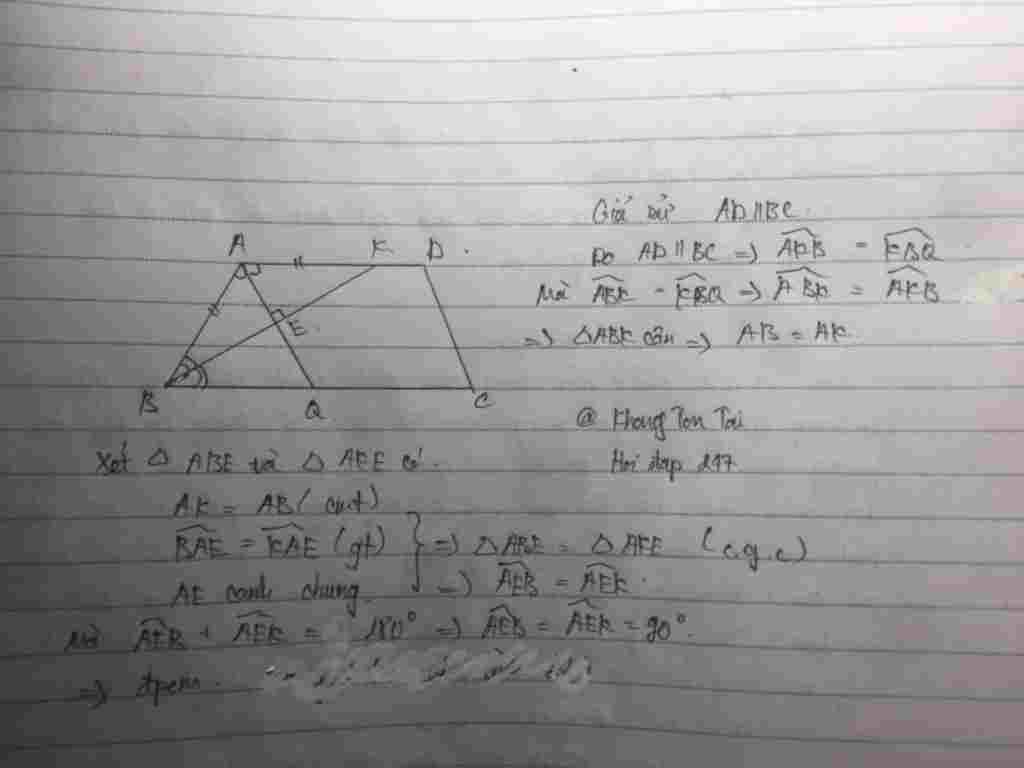 Giả sử AD∥BC.
Do AD∥BC => \widehat{AKB} = \widehat{KBQ}
Mà \widehat{ABK} = \widehat{KBQ} => \widehat{ABK} = \widehat{AKB}
=> △ABK cân => AB = AK
A K D
E
B Q C
@ Khong Ton Tai
Hoi dap 247
Xét △ ABE và △ AKE có.
AK = AB (cmt)
\widehat{BAE} = \widehat{KAE} (gt) } => △ABE = △AKE (c.g.c)
AE canh chung => \widehat{AEB} = \widehat{AEK}.
Mà \widehat{AEB} + \widehat{AEK} = 180° => \widehat{AEB} = \widehat{AEK} = 90°.
=> đpcm.